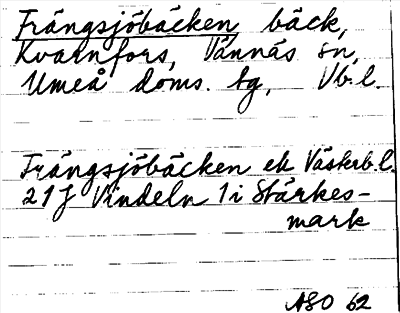 Trångsjöbäcken, bäck,
Kvarnfors, Vännäs sn,
Umeå doms. tg, Vb.l.
Trångsjöbäcken ek Västerb.l.
21J Vindeln 1 i Stärkes-
mark
ASO 62